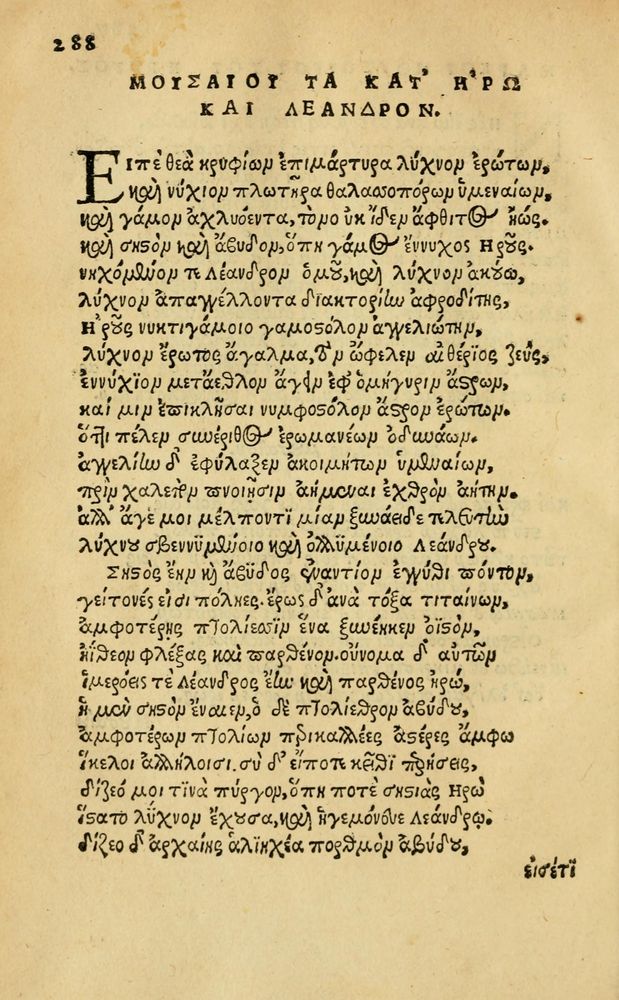 288
ΜΟΥΣΑΙΟΥ ΤΑ ΚΑΤ' ΗΡΩ
ΚΑΙ ΛΕΑΝΔΡΟΝ.
Εἰπὲ θεὰ κρυφίων ἐπιμάρτυρα λύχνον ἐρώτων,
καὶ νύχιον πλωτῆρα θαλασσοπόρων ὑμεναίων,
καὶ γάμον ἀχλυόεντα, τὸν οὐκ ἴδεν ἄφθιτος ἠώς.
καὶ σηστὸν καὶ ἄβυδον, ὅπη γάμος ἔννυχος Ηροῦς.
νηχόμενον τε Λέανδρον ὁμοῦ, καὶ λύχνον ἀκούω,
λύχνον ἀπαγγέλλοντα διακτορίην ἀφροδίτης,
Ηροῦς νυκτιγάμοιο γαμοστόλον ἀγγελιώτην,
λύχνον ἔρωτος ἄγαλμα, τὸν ὤφελεν αἰθέριος ζεὺς,
ἐννύχιον μετάεθλον ἄγειν ἐφ' ὁμήγυριν ἄστρων,
καί μιν ἐπικλῆσαι νυμφοστόλον ἄστρον ἐρώτων.
ὅττι πέλεν συνέριθος ἐρωμανέων ὀδυνάων.
ἀγγελίην δ' ἐφύλαξεν ἀκοιμήτων ὑμεναίων,
πρὶν χαλεπὸν πνοιῇσιν ἀήμεναι ἐχθρὸν ἀήτην.
ἀλλ' ἄγε μοι μέλποντι μίαν ξυνάειδε τελευτὴν
λύχνου σβεννυμένοιο καὶ ὀλλυμένοιο Λεάνδρου.
Σηστὸς ἔην καὶ ἄβυδος ἐναντίον ἐγγύθι πόντου,
γείτονές εἰσι πόληες. ἔρως δ' ἀνὰ τόξα τιταίνων,
ἀμφοτέρῃς πτολίεσσιν ἕνα ξυνέηκεν ὀϊστὸν,
ἠΐθεον φλέξας καὶ παρθένον. οὔνομα δ' αὐτῶν
ἱμερόεις τὲ Λέανδρος ἔην καὶ παρθένος ἡρώ,
ἡ μὲν σηστὸν ἔναιεν, ὁ δὲ πτολίεθρον ἀβύδου,
ἀμφοτέρων πτολίων περικαλλέες ἀστέρες ἄμφω
ἴκελοι ἀλλήλοισι. σὺ δ' εἴποτε κεῖθι περήσεις,
δίζεό μοι τινὰ πύργον, ὅπη ποτὲ σηστιὰς Ηρὼ
ἵστατο λύχνον ἔχουσα, καὶ ἡγεμόνευε Λεάνδρῳ.
δίζεο δ' ἀρχαίης ἁλιηχέα πορθμὸν ἀβύδου,
εἰσέτι